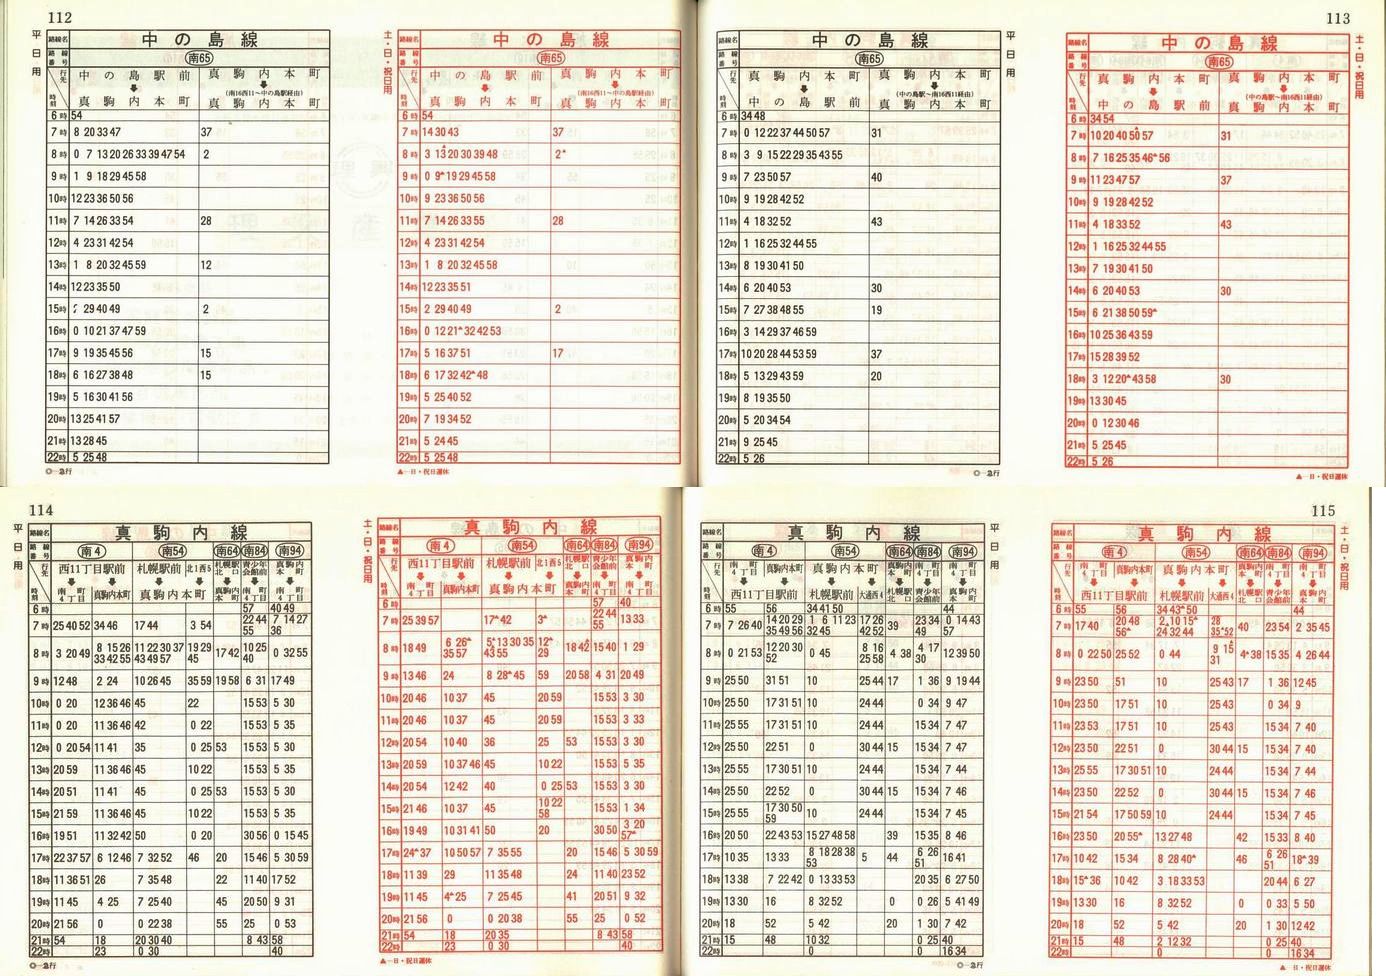 112
平日用
路線名 中の島線
路線番号 南65
行先 中の島駅前 真駒内本町
(南16西11～中の島駅経由)
時刻 真駒内本町 真駒内本町
6時 54
7時 8 20 33 47 37
8時 0 7 13 20 26 33 39 47 54 2
9時 1 9 18 29 45 58
10時 12 23 36 50 56
11時 7 14 26 33 54 28
12時 4 23 31 42 54
13時 1 8 20 32 45 59 12
14時 12 23 35 50
15時 29 40 49 2
16時 0 10 21 37 47 59
17時 9 19 35 45 56 15
18時 6 16 27 38 48 15
19時 5 16 30 41 56
20時 13 25 41 57
21時 13 28 45
22時 5 25 48
◎―急行
土・日・祝日用
路線名 中の島線
路線番号 南65
行先 中の島駅前 真駒内本町
(南16西11～中の島駅経由)
時刻 真駒内本町 真駒内本町
6時 54
7時 14 30 43 37
8時 3 13▲ 20 30 39 48 2▲
9時 0 9▲ 19 29 45 58
10時 9 23 36 50 56
11時 7 14 26 33 55 28
12時 4 23 31 42 54
13時 1 8 20 32 45 58
14時 12 23 35 51
15時 2 29 40 49 2
16時 0 12 21▲ 32 42 53
17時 5 16 37 51 17
18時 6 17 32 42▲ 48
19時 5 25 40 52
20時 7 19 34 52
21時 5 24 45
22時 5 25 48
▲―日・祝日運休
113
平日用
路線名 中の島線
路線番号 南65
行先 真駒内本町 真駒内本町
(中の島駅～南16西11経由)
時刻 中の島駅前 真駒内本町
6時 34 48
7時 0 12 22 37 44 50 57 31
8時 3 9 15 22 29 35 43 55
9時 7 23 50 57 40
10時 9 19 28 42 52
11時 4 18 32 52 43
12時 1 16 25 32 44 55
13時 8 19 30 41 50
14時 6 20 40 53 30
15時 7 27 38 48 55 19
16時 3 14 29 37 46 59
17時 10 20 28 44 53 59 37
18時 5 13 29 43 59 20
19時 8 19 35 50
20時 5 20 34 54
21時 9 25 45
22時 5 26
◎―急行
土・日・祝日用
路線名 中の島線
路線番号 南65
行先 真駒内本町 真駒内本町
(中の島駅～南16西11経由)
時刻 中の島駅前 真駒内本町
6時 34 54
7時 10 20 40 50▲ 57 31
8時 7 16 25 35 46▲ 56
9時 11 23 47 57 37
10時 9 19 28 42 52
11時 4 18 33 52 43
12時 1 16 25 32 44 55
13時 7 19 30 41 50
14時 6 20 40 53 30
15時 6 21 38 50 59▲
16時 10 25 36 43 59
17時 15 28 39 52
18時 3 12 20▲ 43 58 30
19時 13 30 45
20時 0 12 30 46
21時 5 25 45
22時 5 26
▲―日・祝日運休
114
平日用
路線名 真駒内線
路線番号 南4 南54 南64 南84 南94
行先 西11丁目駅前 札幌駅前 北1西5 札幌駅北口 青少年会館前 真駒内本町
時刻 南町4丁目 真駒内本町 真駒内本町 真駒内本町 南町4丁目 南町4丁目
6時 57 40 49
7時 25 40 52 34 46 17 44 3 54 22 44 55 7 14 27 36
8時 3 20 49 8 15 26 33 42 55 11 22 30 37 43 49 57 19 29 45 17 42 10 25 40 0 32 55
9時 12 48 2 24 10 26 45 35 59 19 58 6 31 17 49
10時 0 20 12 36 46 45 22 15 53 5 30
11時 0 20 11 36 46 42 0 22 15 53 5 30
12時 0 20 54 11 41 35 0 25 53 15 53 5 30
13時 20 59 11 36 46 45 10 22 15 53 5 35
14時 20 51 11 41 45 0 25 53 15 53 5 30
15時 21 59 11 36 46 45 10 22 15 53 5 35
16時 19 51 11 32 42 50 0 20 30 56 0 15 45
17時 22 37 57 6 12 46 7 32 52 46 20 15 46 5 30 59
18時 11 36 51 26 7 35 48 22 11 40 17 52
19時 11 45 4 25 7 25 40 45 20 50 9 31
20時 21 56 0 0 22 38 55 25 0 53
21時 54 18 20 30 40 8 43 58
22時 23 0 30 40
◎―急行
土・日・祝日用
路線名 真駒内線
路線番号 南4 南54 南64 南84 南94
行先 西11丁目駅前 札幌駅前 北1西5 札幌駅北口 青少年会館前 真駒内本町
時刻 南町4丁目 真駒内本町 真駒内本町 真駒内本町 南町4丁目 南町4丁目
6時 57 40
7時 25 39 57 17▲ 42 3▲ 22 44 55 13 33
8時 18 49 6 26▲ 35 57 5▲ 13 30 35 43 55 12▲ 29 18 42▲ 15 40 1 29
9時 13 46 24 8 28▲ 45 59 20 58 4 31 20 49
10時 20 46 10 37 45 20 59 15 53 3 30
11時 20 46 10 37 45 20 59 15 53 3 33
12時 20 54 10 40 36 25 53 15 53 3 30
13時 20 59 10 37 46 45 10 22 15 53 5 35
14時 20 54 12 42 40 0 25 53 15 53 3 30
15時 21 46 10 37 45 10 22 58 15 53 1 34
16時 19 49 10 31 41 50 20 30 50 3 20 57▲
17時 24▲ 37 10 50 57 7 35 55 20 15 46 5 30 59
18時 11 39 29 11 35 48 24 11 40 23 52
19時 11 45 4▲ 25 7 25 45 41 20 51 9 32
20時 21 56 0 0 20 38 55 25 0 52
21時 54 18 20 35 8 43 58
22時 23 0 30 40
▲―日・祝日運休
115
平日用
路線名 真駒内線
路線番号 南4 南54 南64 南84 南94
行先 南町4丁目 真駒内本町 真駒内本町 真駒内本町 南町4丁目 南町4丁目
時刻 西11丁目駅前 札幌駅前 大通西4 札幌駅北口 青少年会館前 真駒内本町
6時 55 56 34 41 50 44
7時 7 26 40 14 20 29 35 49 56 1 6 11 23 32 45 17 26 42 52 39 23 34 49 0 14 43 57
8時 0 21 53 12 20 30 52 0 45 8 16 25 58 4 38 4 17 30 12 39 50
9時 25 50 31 51 10 25 44 17 1 36 9 19 44
10時 25 50 17 31 51 10 24 44 0 34 9 47
11時 25 55 17 31 51 10 24 44 15 34 7 47
12時 25 50 22 51 0 30 44 15 15 34 7 47
13時 25 55 17 30 51 10 24 44 15 34 7 44
14時 25 50 22 52 0 30 44 15 15 34 7 46
15時 25 55 17 30 50 59 10 24 44 15 34 7 45
16時 20 50 22 43 53 15 27 48 58 39 15 35 8 46
17時 10 35 13 33 8 18 28 38 53 5 44 6 26 51 16 41
18時 13 38 7 22 42 0 13 33 53 20 35 6 27 50
19時 13 30 16 8 32 52 0 0 26 5 41 49
20時 18 52 5 42 20 1 30 7 42
21時 15 48 10 32 0 25 40
22時 0 0 16 34
◎―急行
土・日・祝日用
路線名 真駒内線
路線番号 南4 南54 南64 南84 南94
行先 南町4丁目 真駒内本町 真駒内本町 真駒内本町 南町4丁目 南町4丁目
時刻 西11丁目駅前 札幌駅前 大通西4 札幌駅北口 青少年会館前 真駒内本町
6時 55 56 34 43▲ 50 44
7時 17 40 20 48 56▲ 2 10 15▲ 24 32 44 28 35▲ 52 40 23 54 2 35 45
8時 0 22 50 25 52 0 44 9 15 31 4▲ 38 15 35 4 26 44
9時 23 50 51 10 25 43 17 1 36 12 45
10時 23 50 17 51 10 25 43 0 34 9
11時 23 53 17 51 10 25 43 15 34 7 40
12時 23 50 22 51 0 30 44 15 15 34 7 40
13時 25 55 17 30 51 10 24 44 15 34 7 44
14時 23 50 22 52 0 30 44 15 15 34 7 46
15時 21 54 17 50 59 10 24 44 15 34 7 45
16時 23 50 20 55▲ 13 27 48 42 15 33 8 40
17時 10 42 15 34 8 28 40▲ 46 6 26 51 18▲ 39
18時 15▲ 36 10 42 3 18 33 53 20 44 6 27
19時 13 30 16 8 32 52 0 0 33 5 50
20時 18 52 5 42 20 1 30 12 42
21時 15 48 2 12 32 0 25 40
22時 0 0 16 34
▲―日・祝日運休